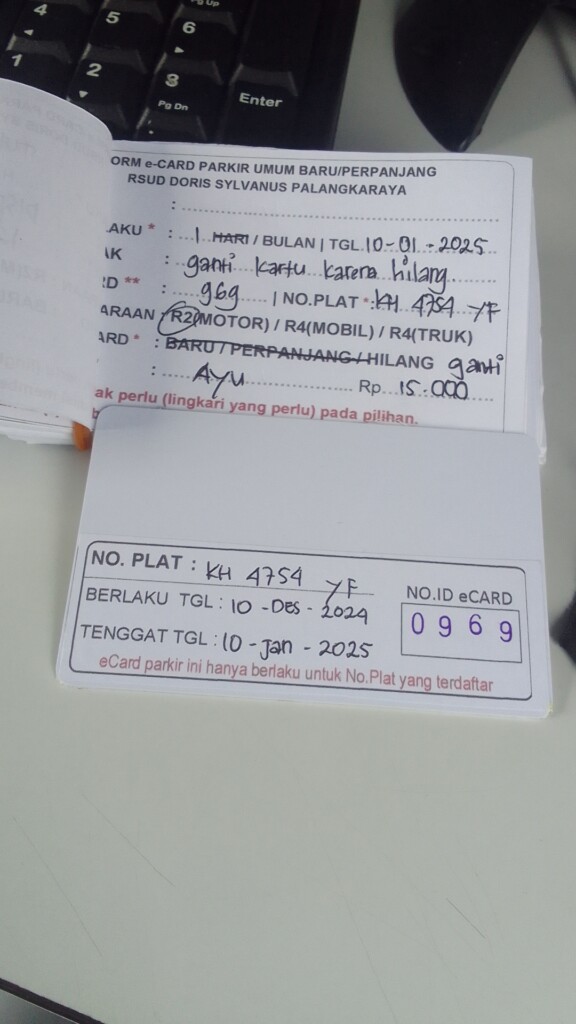 4
5
6
Pg Up
1
2
3
Pg Dn
Enter
ORM e-CARD PARKIR UMUM BARU/PERPANJANG
RSUD DORIS SYLVANUS PALANGKARAYA
: ....................
LAKU * : 1 HARI / BULAN | TGL 10-01-2025
AK : ganti kartu karena hilang
RD ** : 969 | NO.PLAT * : KH 4754 YF
ARAAN : R2(MOTOR) / R4(MOBIL) / R4(TRUK)
ARD * : BARU / PERPANJANG / HILANG ganti
: AYU Rp 15.000
ak perlu (lingkari yang perlu) pada pilihan.
NO. PLAT : KH 4754 YF
BERLAKU TGL : 10 - Des - 2024
TENGGAT TGL : 10 - Jan - 2025
NO.ID eCARD
0969
eCard parkir ini hanya berlaku untuk No.Plat yang terdaftar